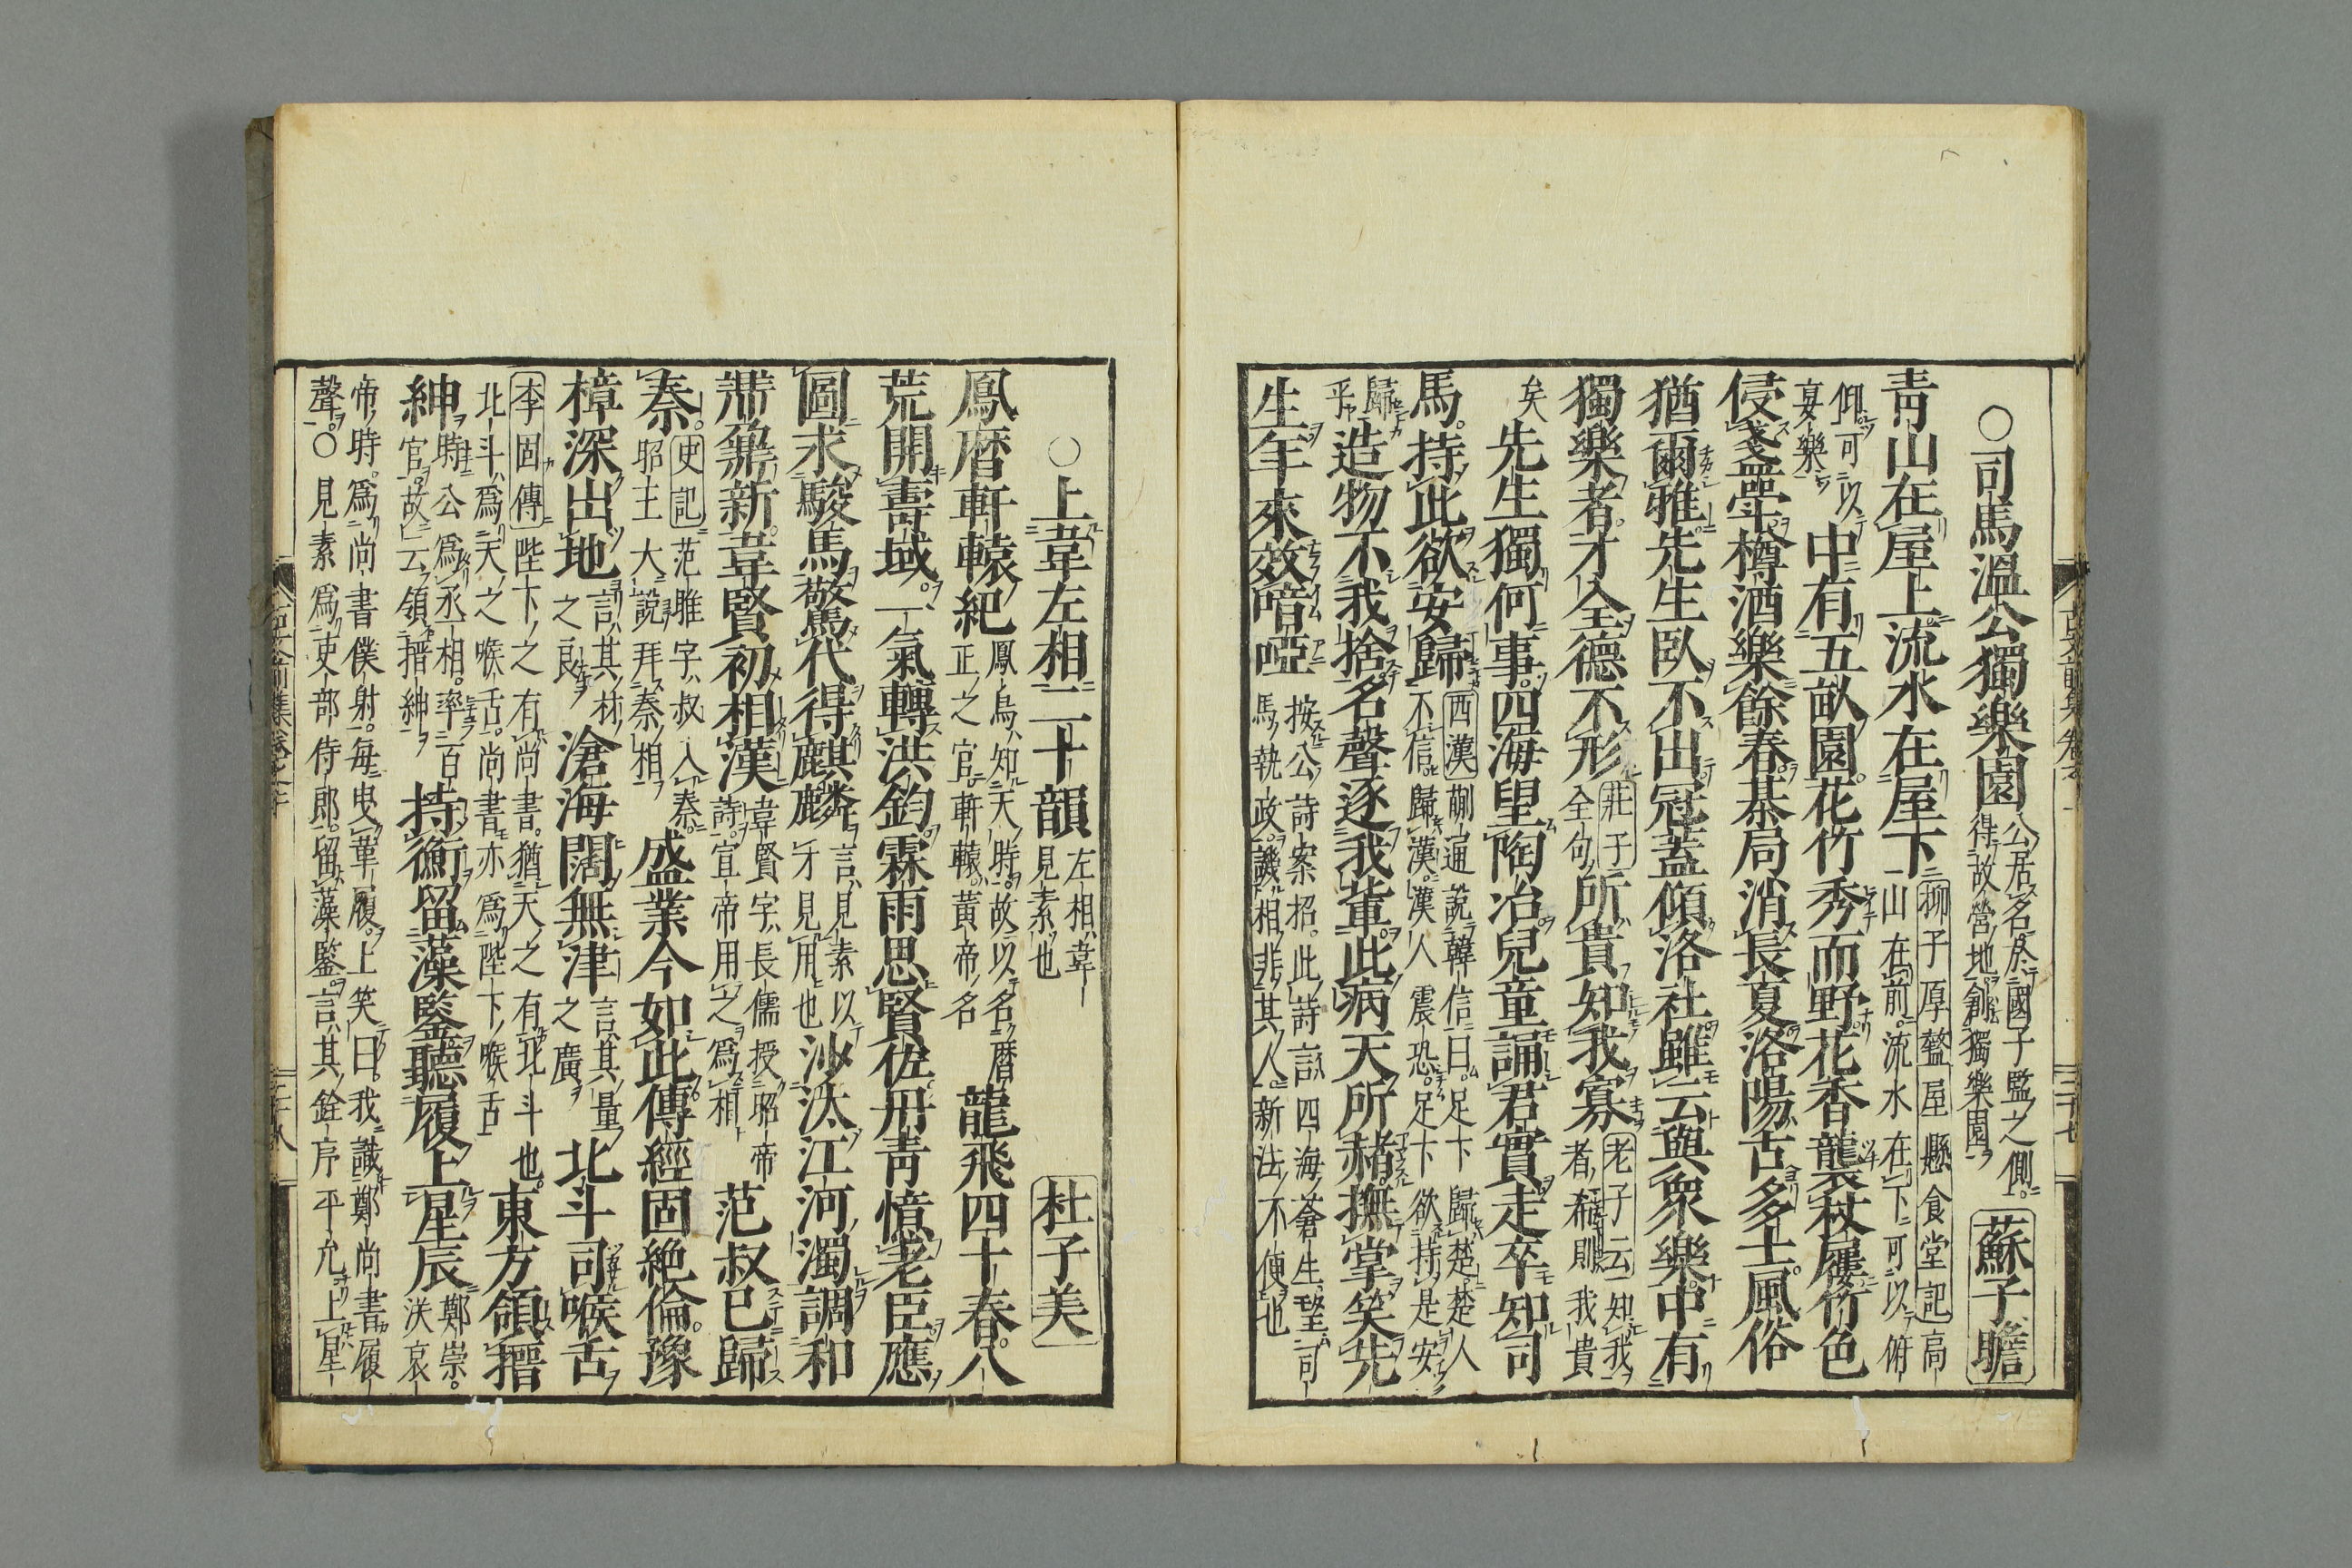 ○司馬溫公獨樂園 公居名於國子監之側 得故營地創獨樂園 蘇子瞻
青山在屋上流水在屋下 柳子厚盩厔縣食堂記高 山在前流水在下可以俯
仰可以 宴樂 中有五畝園花竹秀而野花香襲杖屨竹色
侵盞斝樽酒樂餘春棊局消長夏洛陽古多士風俗
猶爾雅先生臥不出冠蓋傾洛社雖云與衆樂中有
獨樂者才全德不形 莊子 全句 所貴知我寡 老子云知我 者希則我貴
矣 先生獨何事四海望陶冶兒童誦君實走卒知司
馬持此欲安歸 西漢蒯通說韓信曰足下歸楚楚人 不信歸漢漢人震恐足下欲持是安
歸 乎 造物不我捨名聲逐我輩此病天所赭撫掌笑先
生年來效喑啞 按公詩案招此詩言四海蒼生望司 馬執政譏相非其人新法不便也
古文前集卷之
二十七
○上韋左相二十韻 左相韋 見素也 杜子美
鳳曆軒轅紀 鳳鳥知天時故以名曆 正之官軒轅黃帝名 龍飛四十春八
荒開壽域一氣轉洪鈞霖雨思賢佐丹青憶老臣應
圖求駿馬驚代得麒麟 言見素以 才見用也 沙汰江河濁調和
鼎鼐新韋賢初相漢 韋賢字長儒授昭帝 詩宣帝用之爲相 范叔已歸
秦 史記范雎字叔入秦 昭王大說拜秦相 盛業今如此傳經固絶倫豫
樟深出地 言其材 之良 滄海闊無津 言其量 之廣 北斗司喉舌
李固傳陛下之有尚書猶天之有北斗也 北斗爲天之喉舌尚書亦爲陛下喉舌 東方領搢
紳 時公爲丞相率百 官故云領搢紳 持衡留藻鑒聽履上星辰 鄭崇 漢哀
帝時爲尚書僕射每曳革履上笑曰我識鄭尚書履
聲○見素爲吏部侍郎留藻鑒言其銓序平允上星
古文前集卷之
二十八